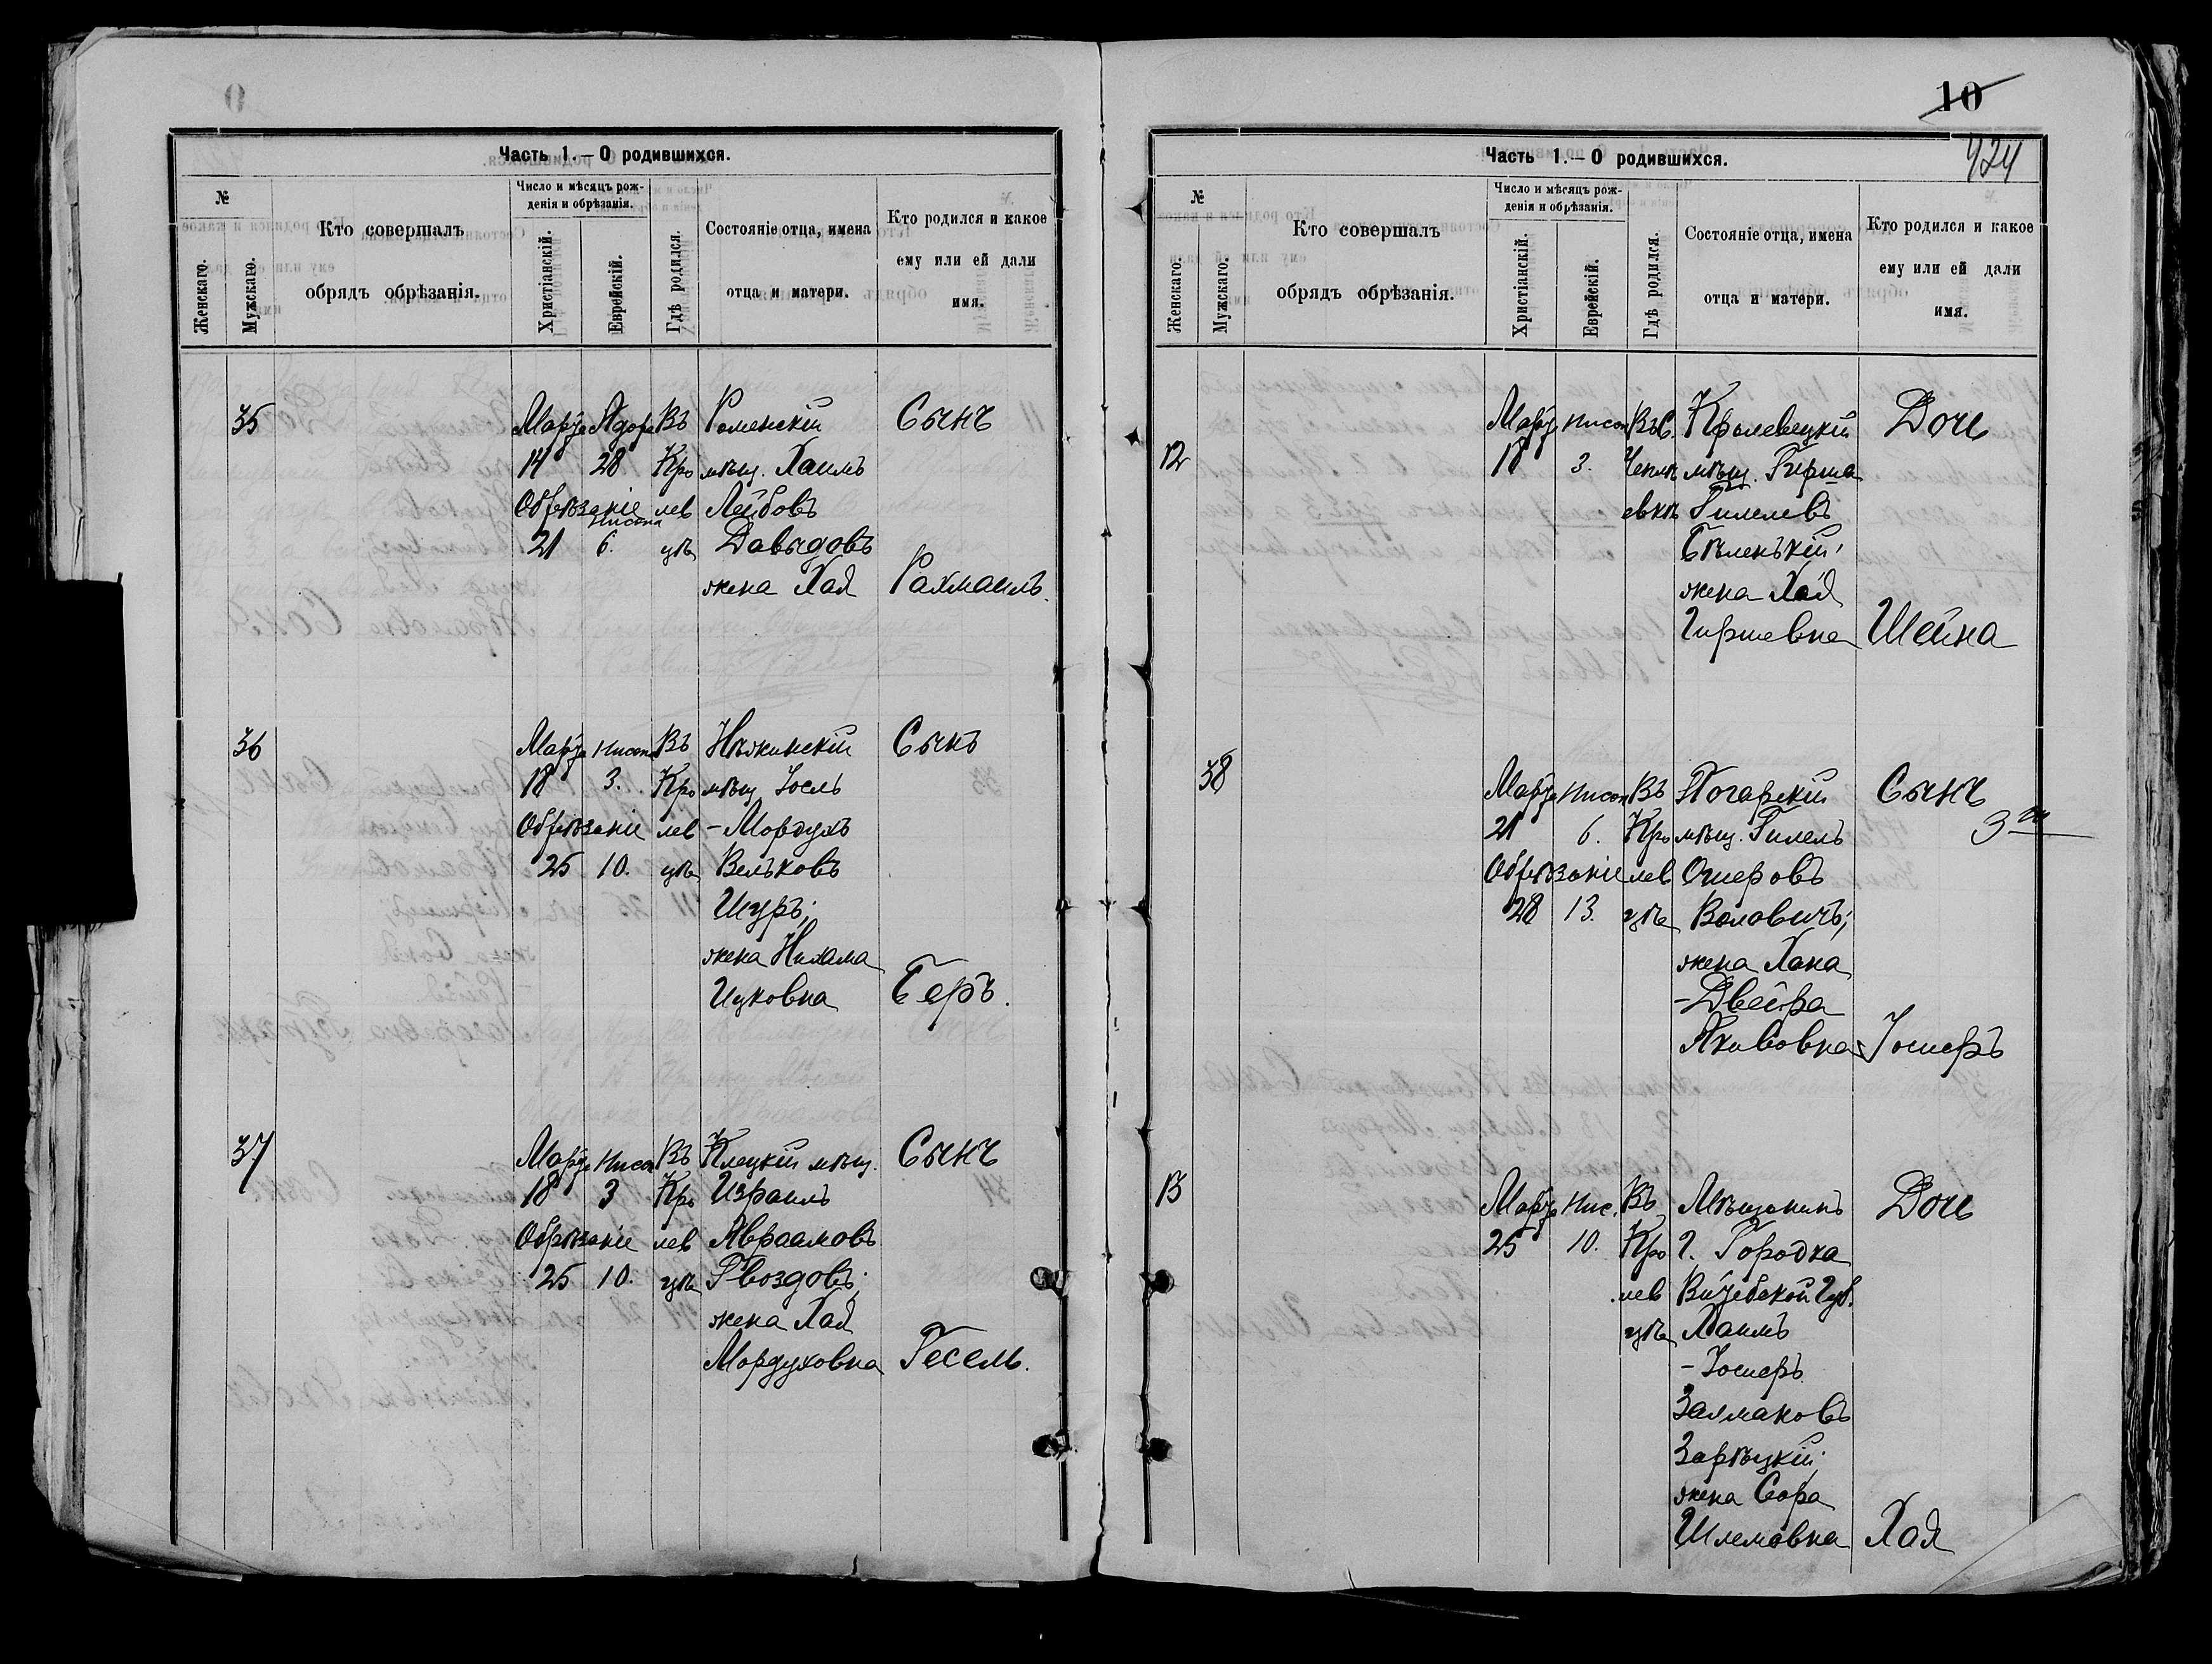 Часть 1.—О родившихся.
№
Женскаго.
Мужскаго.
Кто совершалъ
обрядъ обрѣзанія.
Число и мѣсяцъ рож-
денія и обрѣзанія.
Христіанскій.
Еврейскій.
Гдѣ родился.
Состояніе отца, имена
отца и матери.
Кто родился и какое
ему или ей дали
имя.
35 Марта Адора Въ Роменскій Сынъ
14 28 Кро мѣщ. Хаимъ
Обрѣзаніе лев Лейбовъ
Нисана
21 6. цѣ Давыдовъ
жена Хая Рахмаилъ.
36 Марта Нисана Въ Нѣжинскій Сынъ
18 3. Кро мѣщ Іосль
Обрѣзаніе лев -Мордухъ
25 10. цѣ Вельковъ
Шуръ;
жена Нихама
Ицковна Беръ.
37 Марта Нисан Въ Клецкій мѣщ. Сынъ
18 3 Кро Израиль
Обрѣзаніе лев Авраамовъ
25 10. цѣ Гвоздовъ;
жена Хая
Мордуховна Гесель.
10
424
Часть 1.—О родившихся.
№
Женскаго.
Мужскаго.
Кто совершалъ
обрядъ обрѣзанія.
Число и мѣсяцъ рож-
денія и обрѣзанія.
Христіанскій.
Еврейскій.
Гдѣ родился.
Состояніе отца, имена
отца и матери.
Кто родился и какое
ему или ей дали
имя.
Марта Нисан Въ С. Кролевецкій Дочь
12 18 3. мѣщ. Гирша
Гилелевъ
Бѣленькій;
жена Хая
Гиршевна Шейна
38 Марта Нисан Въ Погарскій Сынъ
21 6. Кро мѣщ. Гилель
Обрѣзаніе лев Ошеровъ
28 13. цѣ Воловичъ;
жена Хана
-Двейра
Акивовна Іошеръ
13 Марта Нис. Въ Мѣщанинъ Дочь
25 10. Кро г. Городка
лев Витебской Губ.
цѣ Хаимъ
-Іошеръ
Залмановъ
Зарѣцкій;
жена Сора
Шлемовна Хая